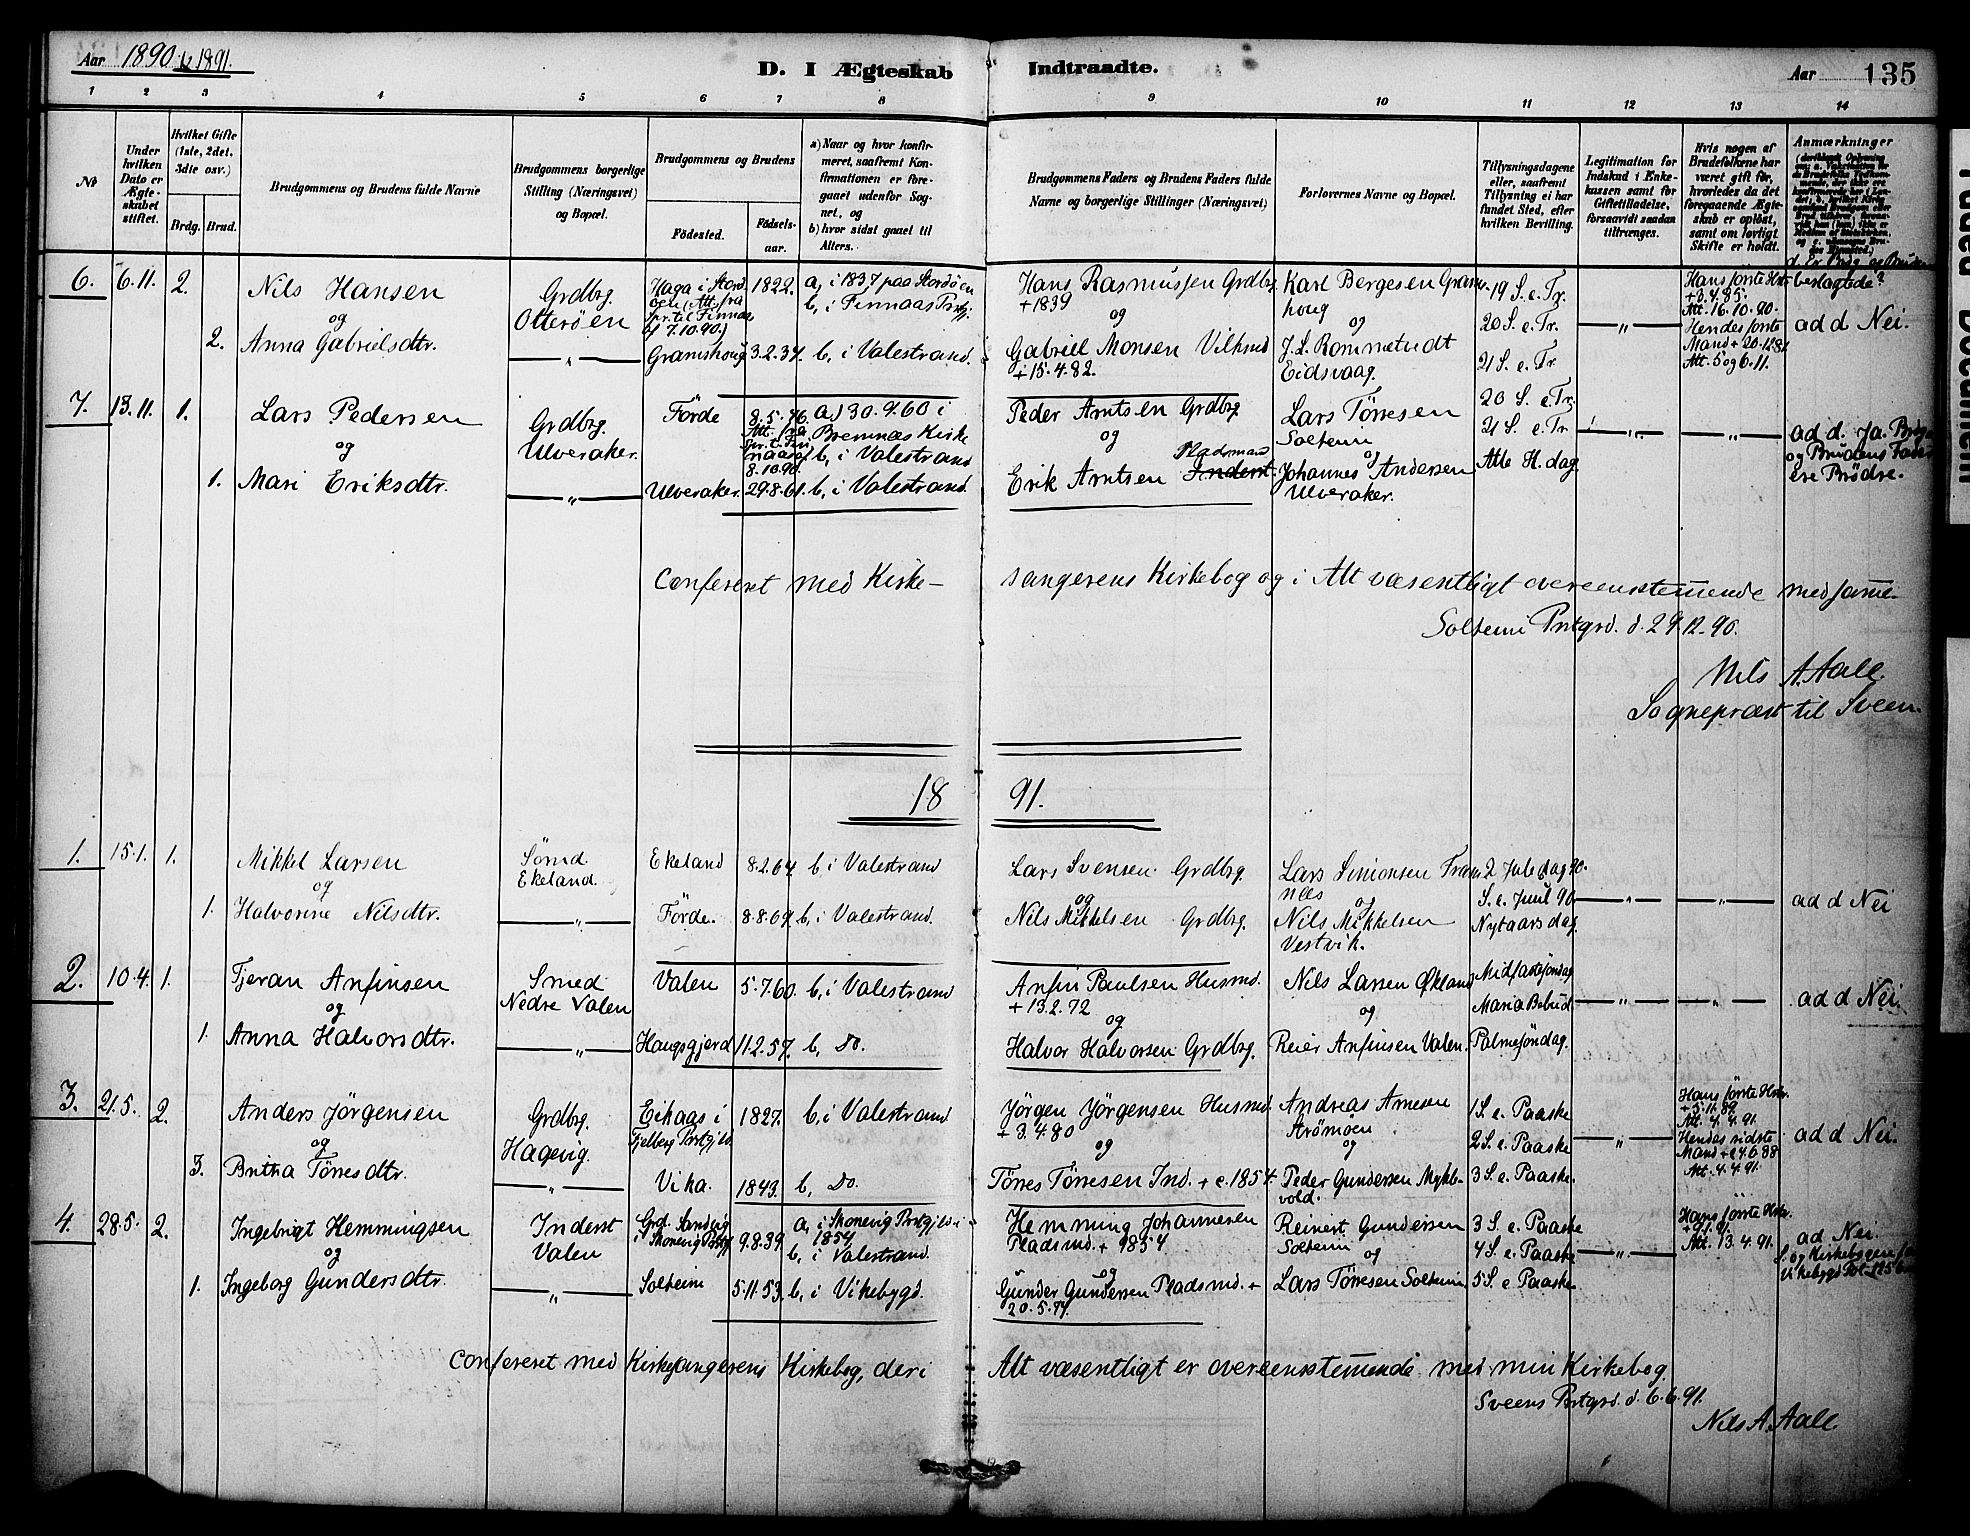 Aar 1890 & 1891.
D. I Ægteskab Indtraadte.
Aar 135
1 2 3 4 5 6 7 8 9 10 11 12 13 14
№
Under hvilken Dato er Ægteskabet stiftet.
Hvilket Gifte (1ste, 2det, 3die osv.)
Brdg. Brud.
Brudgommens og Brudens fulde Navne
Brudgommens borgerlige Stilling (Næringsvei) og Bopæl.
Brudgommens og Brudens
Fødested.
Fødselsaar.
a) Naar og hvor konfirmeret, saafremt Konfirmationen er foregaaet udenfor Sognet, og
b) hvor sidst gaaet til Alters.
Brudgommens Faders og Brudens Faders fulde Navne og borgerlige Stillinger (Næringsvei)
Forlovernes Navne og Bopæl.
Tillysningsdagene eller, saafremt Tillysning ei har fundet Sted, efter hvilken Bevilling.
Legitimation for Indskud i Enkekassen samt for Giftetilladelse, forsaavidt saadan tiltrænges.
Hvis nogen af Brudefolkene har været gift før, hvorledes da det foregaaende Ægteskab er opløst, samt om lovligt Skifte er holdt.
Anmærkninger
d. Er Brdg. og Bruden beslægtede?
6. 6.11. 2. Nils Hansen Grdbrg. Otterøen Haga i Stord 1822. a, i 1837 paa Stordøen b, i Finnaas Prstgj. Hans Rasmussen Grdbg. +1839 Karl Bergesen Gramshoug 19 S. e. Tr. Hans første Hstr. +3.4.85. Att. 16.10.90.
og
7.10.90.)
2. Anna Gabrielsdtr. — „ — Gramshoug 3.2.37. b, i Valestrand. Gabriel Monsen +15.4.82. J. L. Rommetvedt Eidsvaag. 20 S. e. Tr. 21 S. e. Tr. — „ — Hendes første Mand + 20.12.81 Att. 5 og 6.11. ad d Nei.
7. 13.11. 1. Lars Pedersen Grdbrg. Ulveraker. Förde 8.5.76. a,) 30.9.60 i Bremnes Kirke b, i Valestrand Peder Arntsen Grdbg. Lars Törresen Soltein 20 S. e. Tr. 21 S. e. Tr — „ — — „ — ad d. Ja. Brdg. og Brudens Fader ere Brødre.
og
8.10.90.
1. Mari Eriksdtr. — „ — Ulveraker. 29.8.61. b, i Valestrand. Erik Arntsen Pladsmand Inderst. Johannes Andersen Ulveraker. Alle H. dag.
Confereret med Kirkesangerens Kirkebog og i Alt væsentligt overeensstemmende med samme.
Soltein Prstgrd. d. 29.12.90.
Nils A. Aall.
Sognepræst til Sveen.
1891.
1. 15.1. 1. Mikkel Larsen Sømd. Ekeland. Ekeland 8.2.64. b, i Valestrand Lars Svensen Grdbrg. Lars Simonsen Framnæs 2 Juledag 90.
og
1. Halvorine Nilsdtr. — „ — Förde. 8.8.69. b, i Valestrand. Nils Mikkelsen Grdbrg. Nils Mikkelsen Vestvik. S. e. Juul 90 Nytaarsdag. — „ — — „ — ad d Nei
2. 10.4. 1. Tjeran Anfinsen Smed Nedre Valen Valen 5.7.60. b, i Valestrand Anfin Paulsen Husmd. +13.2.72 Nils Larsen Økland Midfastesöndag
og
1. Anna Halvorsdtr. — „ — Haugsgjerd 11.2.57. b, Do. Halvor Halvorsen Grdbrg. Reier Anfinsen Valen. Maria Bebud. Palmesöndag. — „ — — „ — ad d Nei.
3. 21.5. 2. Anders Jörgensen Grdbrg. Hagevig. Eikaas i Fjelberg Prstgjld. 1827. b, i Valestrand Jörgen Jörgensen Husmd. +3.4.80 Andreas Arnesen Strömöen 1 S. e. Paaske Hans første Hstr. +5.11.89. Att. 4.4.91.
og
3. Britha Törresdtr. — „ — Vika. 1843. b, Do. Törres Törresen Ind. + c. 1854. Peder Gundersen Myklevold. 2 S. e. Paaske 3 S. e. Paaske. — „ — Hendes sidste Mand + c 4.6.88 Att. 4.4.91. ad d Nei.
4. 28.5. 2. Ingebrigt Hemmingsen Inderst Valen Grd. Sandvig i Skonevig Prstgj. 9.8.39. a, i Skonevig Prstgjld i 1854. b, i Valestrand. Hemming Johannesen Pladsmd. + 1854 Reinert Gundersen Soltein 3 S. e. Paaske 4 S. e. Paaske — „ — Hans første Hstr. +9.1.91. Att. 13.4.91. ad Nei.
og
1. Ingeborg Gundersdtr. — „ — Soltein 5.11.53. b, i Vikebygd. Gunder Gundersen Pladsmd. + Lars Törresen Soltein 5 S. e. Paaske
Confereret med Kirkesangerens Kirkebog, der i Alt væsentligt er overeensstemmende med min Kirkebog.
Sveens Prstgrd. d. 6.6.91.
Nils A. Aall